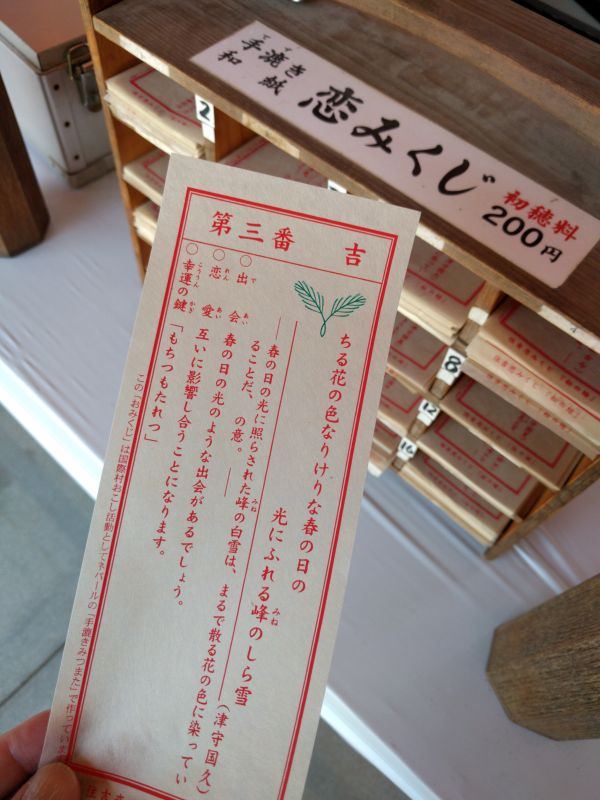 手漉き
てす
和紙
恋みくじ
初穂料
200円
2
8
12
16
第三番 吉
ちる花の色なりけりな春の日の
光にふれる峰のしら雪
みね
(津守国久)
―春の日の光に照らされた峰の白雪は、まるで散る花の色に染ってい
みね
ることだ、の意。―
○出会
であい
春の日の光のような出会があるでしょう。
○恋愛
れんあい
互いに影響し合うことになります。
○幸運の鍵
こううん かぎ
「もちつもたれつ」
この「おみくじ」は国際村おこし活動としてネパールの「手漉きみつまた」で作っていま